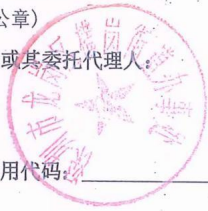 公章)
或其委托代理人:
用代码:
深圳市龙岗区
街道